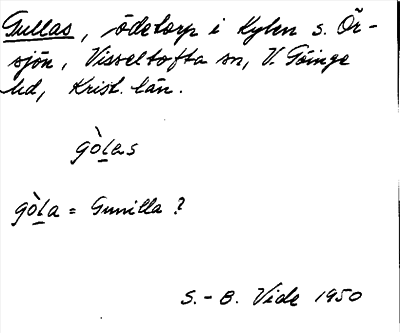 Gullas, ödetorp i Kylen s. Ör-
sjön, Visseltofta sn, V. Göinge
hd, Krist. län.
gòlas
gòla = Gunilla ?
S.-B. Vide 1950